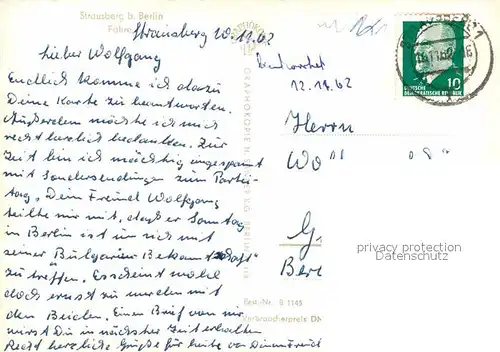 Strausberg b. Berlin
Fähre
Strausberg 10.11.62
Lieber Wolfgang
Endlich komme ich dazu
Deine Karte zu beantworten.
Außerdem möchte ich mich
recht herzlich bedanken. Zur
Zeit bin ich mächtig eingespannt
mit Sondersendungen zum Partei-
tag. Dein Freund Wolfgang
teilte mir mit, daß er Sonntag
in Berlin ist um sich mit
seiner Bulgarien Bekanntschaft
zu treffen. Es scheint wohl
doch ernst zu werden mit
den Beiden. Einen Brief von mir
wirst Du in nächster Zeit erhalten
Recht herzliche Grüße für heute von
beantwortet
12.11.62
10
DEUTSCHE
DEMOKRATISCHE REPUBLIK
Herrn
Wo
G.
Berl
privacy protection
Datenschutz
Best.-Nr. B 1145
Verbraucherpreis DM